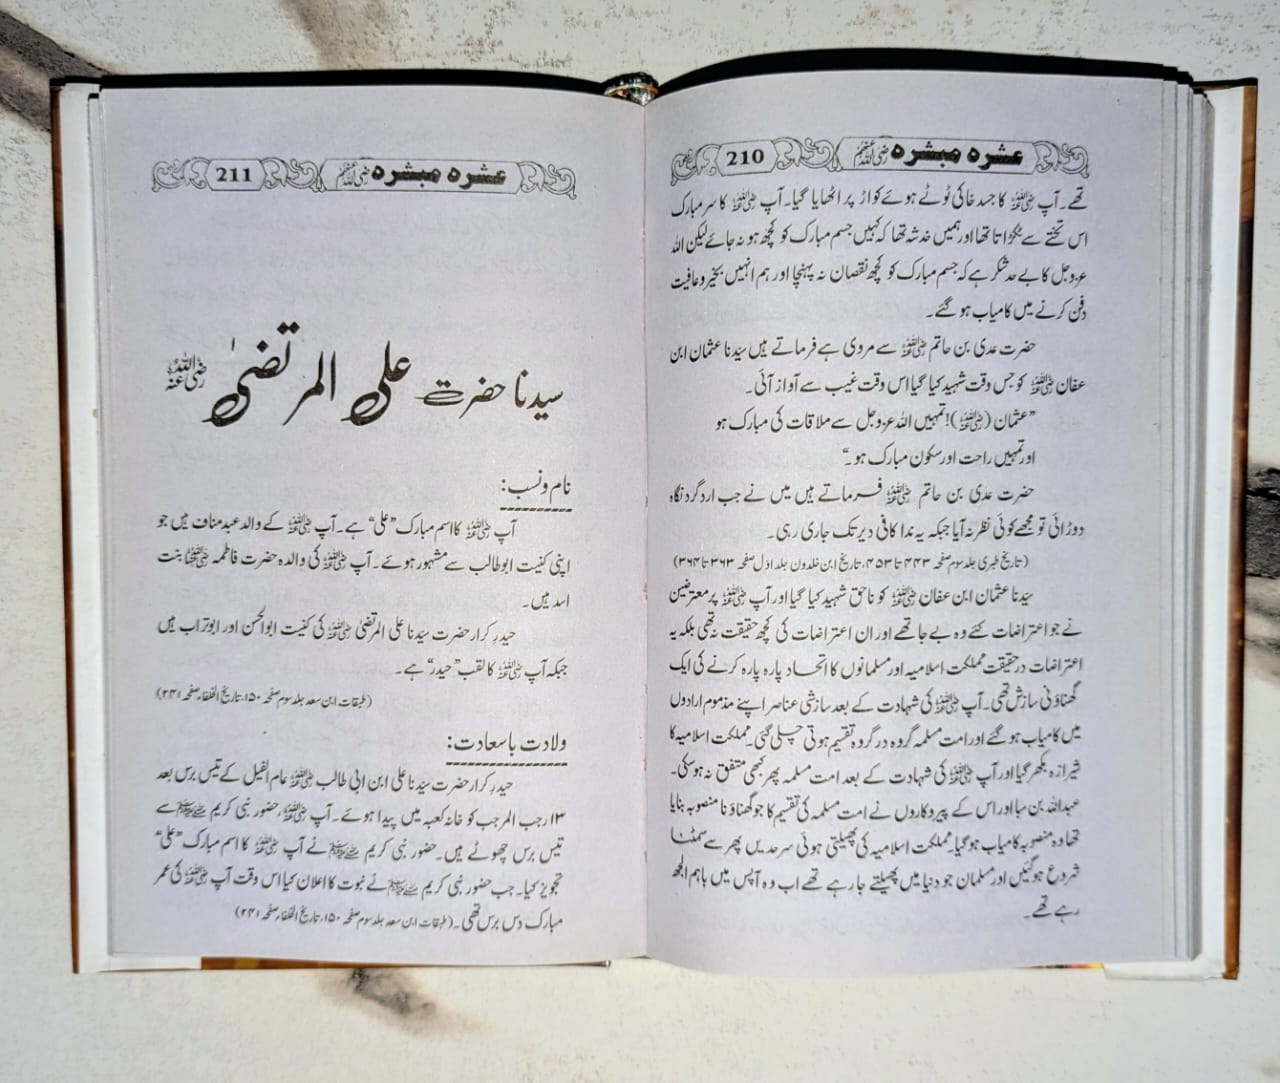 عشرہ مبشرہ رضی اللہ عنہم 210
تھے۔ آپ رضی اللہ عنہ کا جسد خاکی ٹوٹے ہوئے کواڑ پر اٹھایا گیا۔ آپ رضی اللہ عنہ کا سر مبارک
اس تختے سے ٹکراتا تھا اور ہمیں خدشہ تھا کہ کہیں جسم مبارک کو کچھ ہو نہ جائے لیکن اللہ
عزوجل کا بے حد شکر ہے کہ جسم مبارک کو کچھ نقصان نہ پہنچا اور ہم انہیں بخیر و عافیت
دفن کرنے میں کامیاب ہو گئے۔
حضرت عدی بن حاتم رضی اللہ عنہ سے مروی ہے فرماتے ہیں سیّدنا عثمان ابن
عفان رضی اللہ عنہ کو جس وقت شہید کیا گیا اس وقت غیب سے آواز آئی۔
”عثمان (رضی اللہ عنہ)! تمہیں اللہ عزوجل سے ملاقات کی مبارک ہو
اور تمہیں راحت اور سکون مبارک ہو۔“
حضرت عدی بن حاتم رضی اللہ عنہ فرماتے ہیں میں نے جب ارد گرد نگاہ
دوڑائی تو مجھے کوئی نظر نہ آیا جبکہ یہ ندا کافی دیر تک جاری رہی۔
(تاریخ طبری جلد سوم صفحہ ۴۴۳ تا ۴۵۳، تاریخ ابن خلدون جلد اول صفحہ ۳۶۳ تا ۳۶۴)
سیّدنا عثمان ابن عفان رضی اللہ عنہ کو ناحق شہید کیا گیا اور آپ رضی اللہ عنہ پر معترضین
نے جو اعتراضات کئے وہ بے جا تھے اور ان اعتراضات کی کچھ حقیقت نہ تھی بلکہ یہ
اعتراضات درحقیقت مملکت اسلامیہ اور مسلمانوں کا اتحاد پارہ پارہ کرنے کی ایک
گھناؤنی سازش تھی۔ آپ رضی اللہ عنہ کی شہادت کے بعد سازشی عناصر اپنے مذموم ارادوں
میں کامیاب ہو گئے اور امت مسلمہ گروہ در گروہ تقسیم ہوتی چلی گئی۔ مملکت اسلامیہ کا
شیرازہ بکھر گیا اور آپ رضی اللہ عنہ کی شہادت کے بعد امت مسلمہ پھر کبھی متفق نہ ہو سکی۔
عبداللہ بن سبا اور اس کے پیروکاروں نے امت مسلمہ کی تقسیم کا جو گھناؤنا منصوبہ بنایا
تھا وہ منصوبہ کامیاب ہو گیا۔ مملکت اسلامیہ کی پھیلتی ہوئی سرحدیں پھر سے سمٹنا
شروع ہو گئیں اور مسلمان جو دنیا میں پھیلتے جا رہے تھے اب وہ آپس میں باہم الجھ
رہے تھے۔
عشرہ مبشرہ رضی اللہ عنہم 211
سیدنا حضرت علی المرتضیٰ رضی اللہ عنہ
نام و نسب:
آپ رضی اللہ عنہ کا اسم مبارک ”علی“ ہے۔ آپ رضی اللہ عنہ کے والد عبد مناف ہیں جو
اپنی کنیت ابوطالب سے مشہور ہوئے۔ آپ رضی اللہ عنہ کی والدہ حضرت فاطمہ رضی اللہ عنہا بنت
اسد ہیں۔
حیدرِ کرار حضرت سیّدنا علی المرتضیٰ رضی اللہ عنہ کی کنیت ابوالحسن اور ابوتراب ہیں
جبکہ آپ رضی اللہ عنہ کا لقب ”حیدر“ ہے۔
(طبقات ابن سعد جلد سوم صفحہ ۱۵۰، تاریخ الخلفاء صفحہ ۲۴۱)
ولادت باسعادت:
حیدرِ کرار حضرت سیّدنا علی ابن ابی طالب رضی اللہ عنہ عام الفیل کے تیس برس بعد
۱۳ رجب المرجب کو خانہ کعبہ میں پیدا ہوئے۔ آپ رضی اللہ عنہ، حضور نبی کریم ﷺ سے
تیس برس چھوٹے ہیں۔ حضور نبی کریم ﷺ نے آپ رضی اللہ عنہ کا اسم مبارک ”علی“
تجویز کیا۔ جب حضور نبی کریم ﷺ نے نبوت کا اعلان کیا اس وقت آپ رضی اللہ عنہ کی عمر
مبارک دس برس تھی۔ (طبقات ابن سعد جلد سوم صفحہ ۱۵۰، تاریخ الخلفاء صفحہ ۲۴۱)